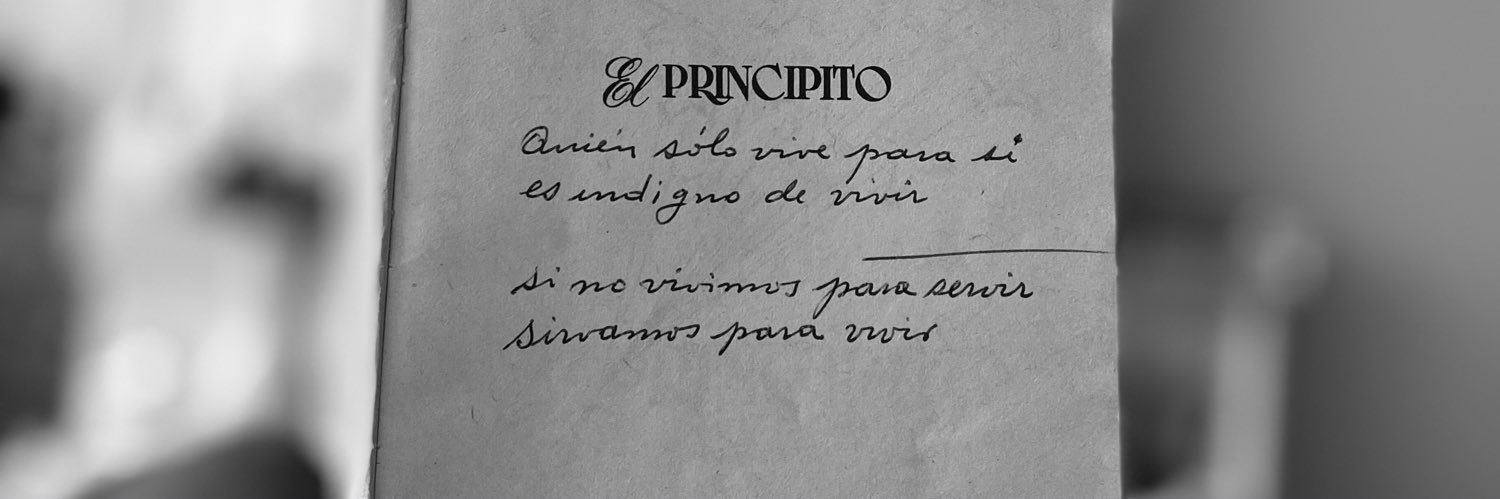 El PRINCIPITO
Quién sólo vive para sí
es indigno de vivir
si no vivimos para servir
sirvamos para vivir